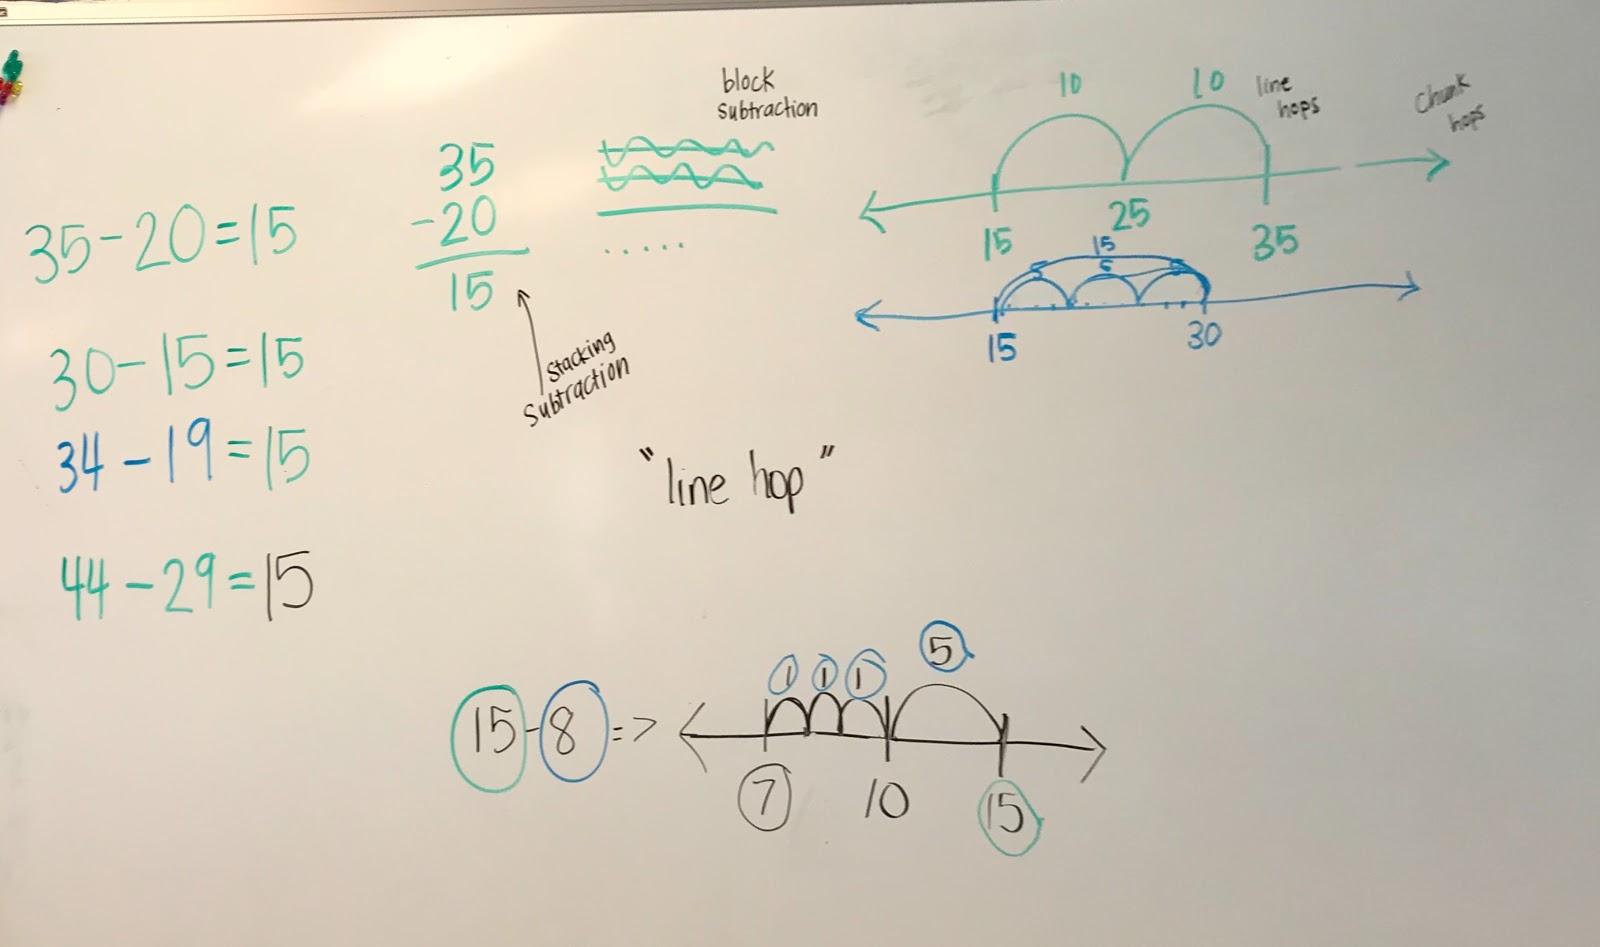 35-20=15
30-15=15
34-19=15
44-29=15
35
-20
15
Stacking
Subtraction
block
subtraction
.....
10 10
line
hops
Chunk
hops
15 25 35
15
5 5 5
15 30
"line hop"
15-8=>
1 1 1 5
7 10 15